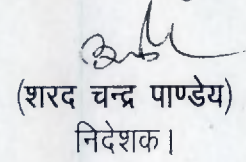 (शरद चन्द्र पाण्डेय)
निदेशक।